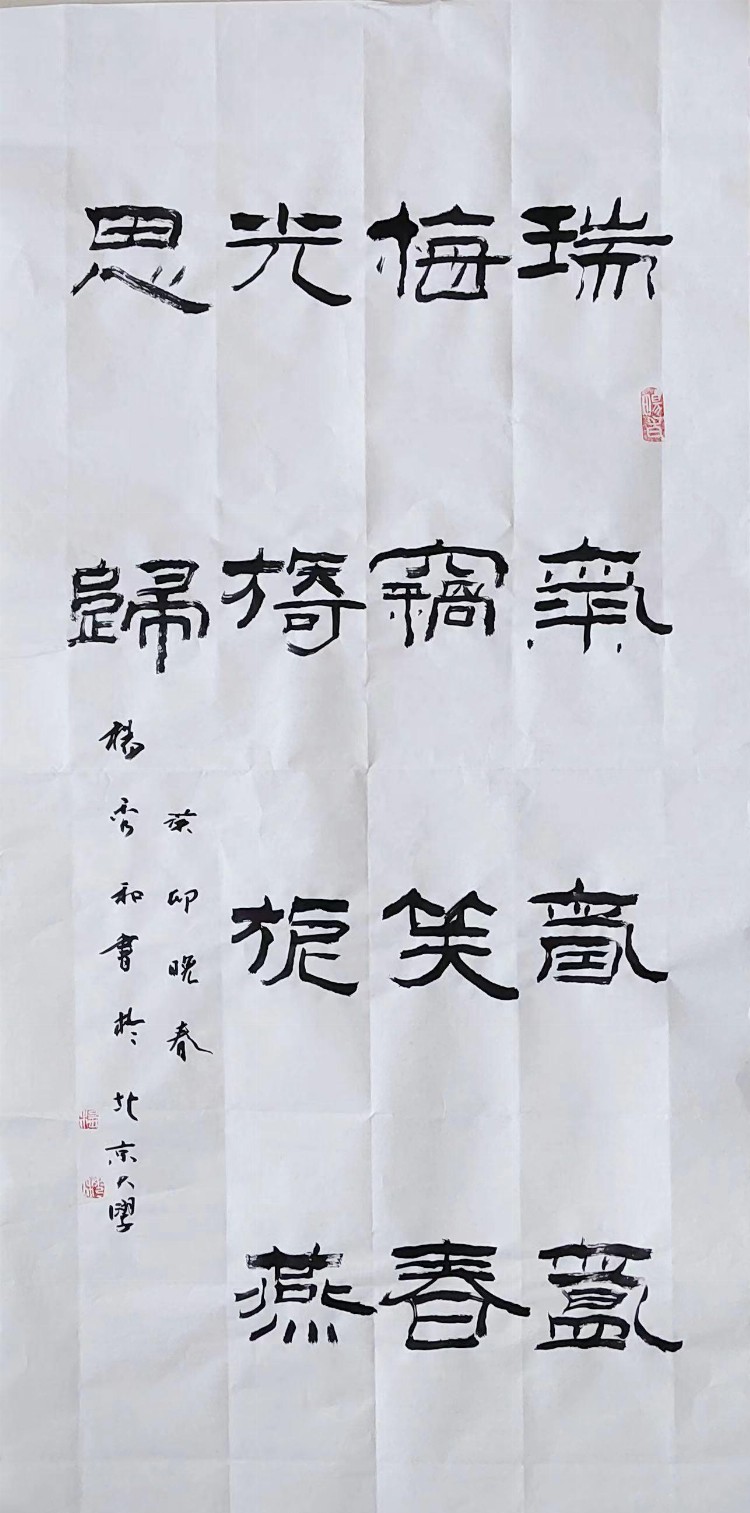 瑞氣氤氳
梅竊笑春
光旖旎燕
思歸
癸卯晚春
楊秀和書於北京大學